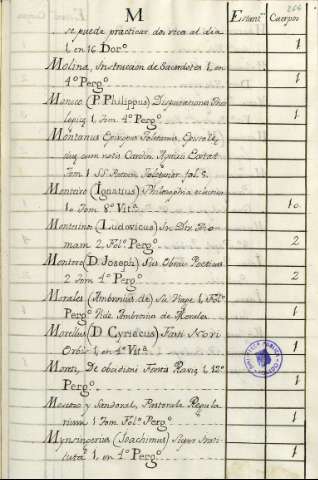 M
Estant.
Cuerpos
266
se puede practicar dos veces al dia
1 en 16 Dor.º
1
Molina, Instruccion de Sacerdotes 1. en
4.º Perg.º
1
(P. Philippus) Disputationes Theo
logicæ 1. tom. 4.º Perg.º
1
Montanus Episcopus Toletanus, Epistolæ
cum notis Cardin.
Tom 1 SS. Patrum Toletanor. fol. 8.
Monteiro (Ignatius) Philosophia eclectica
10 tom 8.º Vit.ª
10
(Ludovicus) In Div. Tho
mam 2. Fol.º Perg.º
2
Montoro (D. Joseph) Sus Obras Poeticas
2 tom 4.º Perg.º
2
Morales (Ambrosius de) Su Viage 1. Fol.º
Perg.º Vide Ambrosio de Morales
1
Morelus (D. Cyriacus) Fasti Novi
Orbis 1. en 4.º Vit.ª
1
De obsidione 1. 12.º
Perg.º
1
y Sandoval, Pastorale Regula
rium 1 tom Fol.º Perg.º
1
Mynsingerius (Joachimus) Super Insti
tuta 1. en 4.º Perg.º
1